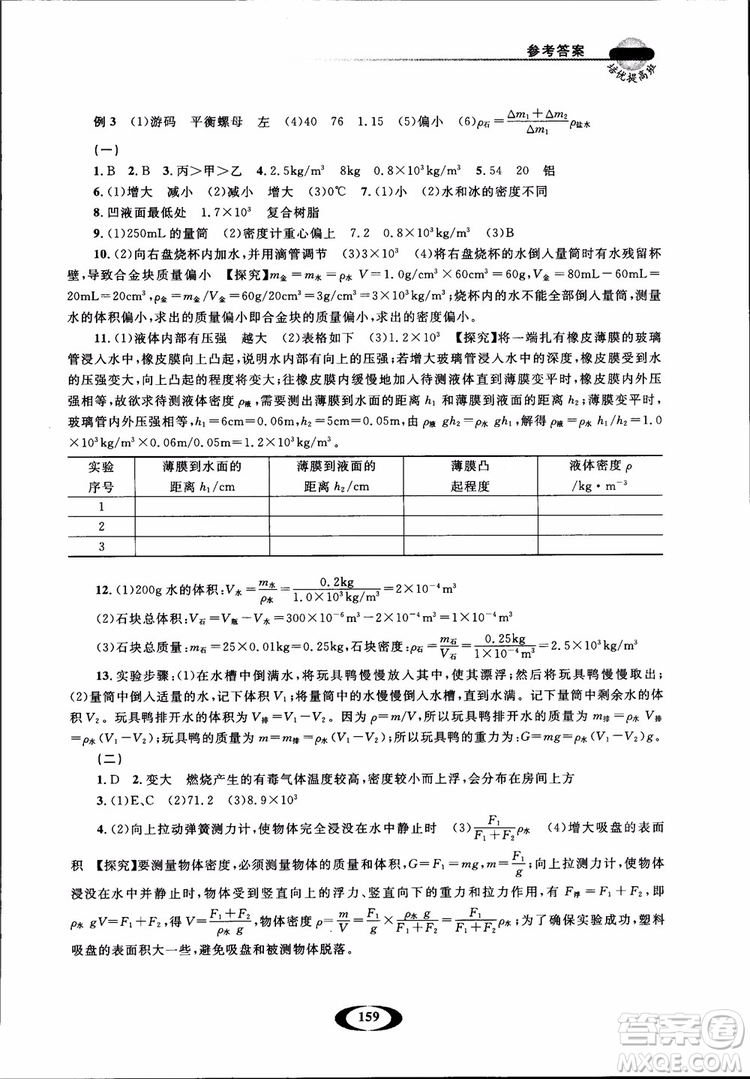 参考答案
培优提高班
例3 (1)游码 平衡螺母 左 (4)40 76 1.15 (5)偏小 (6)ρ石=(Δm₁+Δm₂)/Δm₁ ρ盐水
(一)
1.B 2.B 3.丙>甲>乙 4.2.5kg/m³ 8kg 0.8×10³kg/m³ 5.54 20 铝
6.(1)增大 减小 (2)减小 增大 (3)0℃ 7.(1)小 (2)水和冰的密度不同
8.凹液面最低处 1.7×10³ 复合树脂
9.(1)250mL的量筒 (2)密度计重心偏上 7.2 0.8×10³ (3)B
10.(2)向右盘烧杯内加水,并用滴管调节 (3)3×10³ (4)将右盘烧杯的水倒人量筒时有水残留杯
壁,导致合金块质量偏小 【探究】m金=m水=ρ水 V=1.0g/cm³×60cm³=60g,V金=80mL-60mL=
20mL=20cm³,ρ金=m金/V金=60g/20cm³=3g/cm³=3×10³kg/m³;烧杯的水不能全部倒人量筒,测量
水的体积偏小,求出的质量偏小即合金块的质量偏小,求出的密度偏小。
11.(1)液体内部有压强 越大 (2)表格如下 (3)1.2×10³ 【探究】将一端扎有橡皮薄膜的玻璃
管浸入水中,橡皮膜向上凸起,说明水内部有向上的压强;若增大玻璃管浸入水中的深度,橡皮膜受到水
的压强变大,向上凸起的程度将变大;往橡皮膜内缓慢地加入待测液体直到薄膜变平时,橡皮膜内外压
强相等,故欲求待测液体密度ρ液,需要测出薄膜到水面的距离h₁和薄膜到液面的距离h₂;薄膜变平时,
玻璃管内外压强相等,h₁=6cm=0.06m,h₂=5cm=0.05m,由ρ液 gh₂=ρ水 gh₁,解得ρ液=ρ水 h₁/h₂=1.0
×10³kg/m³×0.06m/0.05m=1.2×10³kg/m³。
实验 薄膜到水面的 薄膜到液面的 薄膜凸 液体密度ρ
序号 距离h₁/cm 距离h₂/cm 起程度 /kg·m⁻³
1
2
3
12.(1)200g水的体积:V水=m水/ρ水=0.2kg/(1.0×10³kg/m³)=2×10⁻⁴m³
(2)石块总体积:V石=V瓶-V水=300×10⁻⁶m³-2×10⁻⁴m³=1×10⁻⁴m³
(3)石块总质量:m石=25×0.01kg=0.25kg,石块密度:ρ石=m石/V石=0.25kg/(1×10⁻⁴m³)=2.5×10³kg/m³
13.实验步骤:(1)在水槽中倒满水,将玩具鸭慢慢放人其中,使其漂浮;然后将玩具鸭慢慢取出;
(2)量筒中倒人适量的水,记下体积V₁;将量筒中的水慢慢倒人水槽,直至水满。记下量筒剩余水的体
积V₂。玩具鸭排开水的体积V排=V₁-V₂。因为ρ=m/V,所以玩具鸭排开水的质量m排=ρ水V排
=ρ水(V₁-V₂),玩具鸭的质量m=m排=ρ水(V₁-V₂)。玩具鸭的重力为:G=mg=ρ水(V₁-V₂)g。
(二)
1.D 2.变大 燃烧产生的有毒气体温度较高,密度较小而上浮,会分布在房间上方
3.(1)E、C (2)71.2 (3)8.9×10³
4.(2)向上拉动弹簧测力计,使物体完全浸没在水中静止时 (3)F₁/(F₁+F₂)ρ水 (4)增大吸盘的表面
积 【探究】要测量物体密度,必须测量物体的质量和体积,G=F₁=mg,m=F₁/g;向上拉测力计,使物体
浸没在水中并静止时,物体受到竖直向上的浮力、竖直向下的重力和拉力作用,有F浮=F₁+F₂,即
ρ水 gV=F₁+F₂,得V=(F₁+F₂)/(ρ水 g),物体密度ρ=m/V=F₁/g×ρ水 g/(F₁+F₂)=F₁/(F₁+F₂)ρ水;为了确保实验成功,塑料
吸盘的表面积大一些,避免吸盘和被测物体脱落。
159
答案圈
MXQE.COM